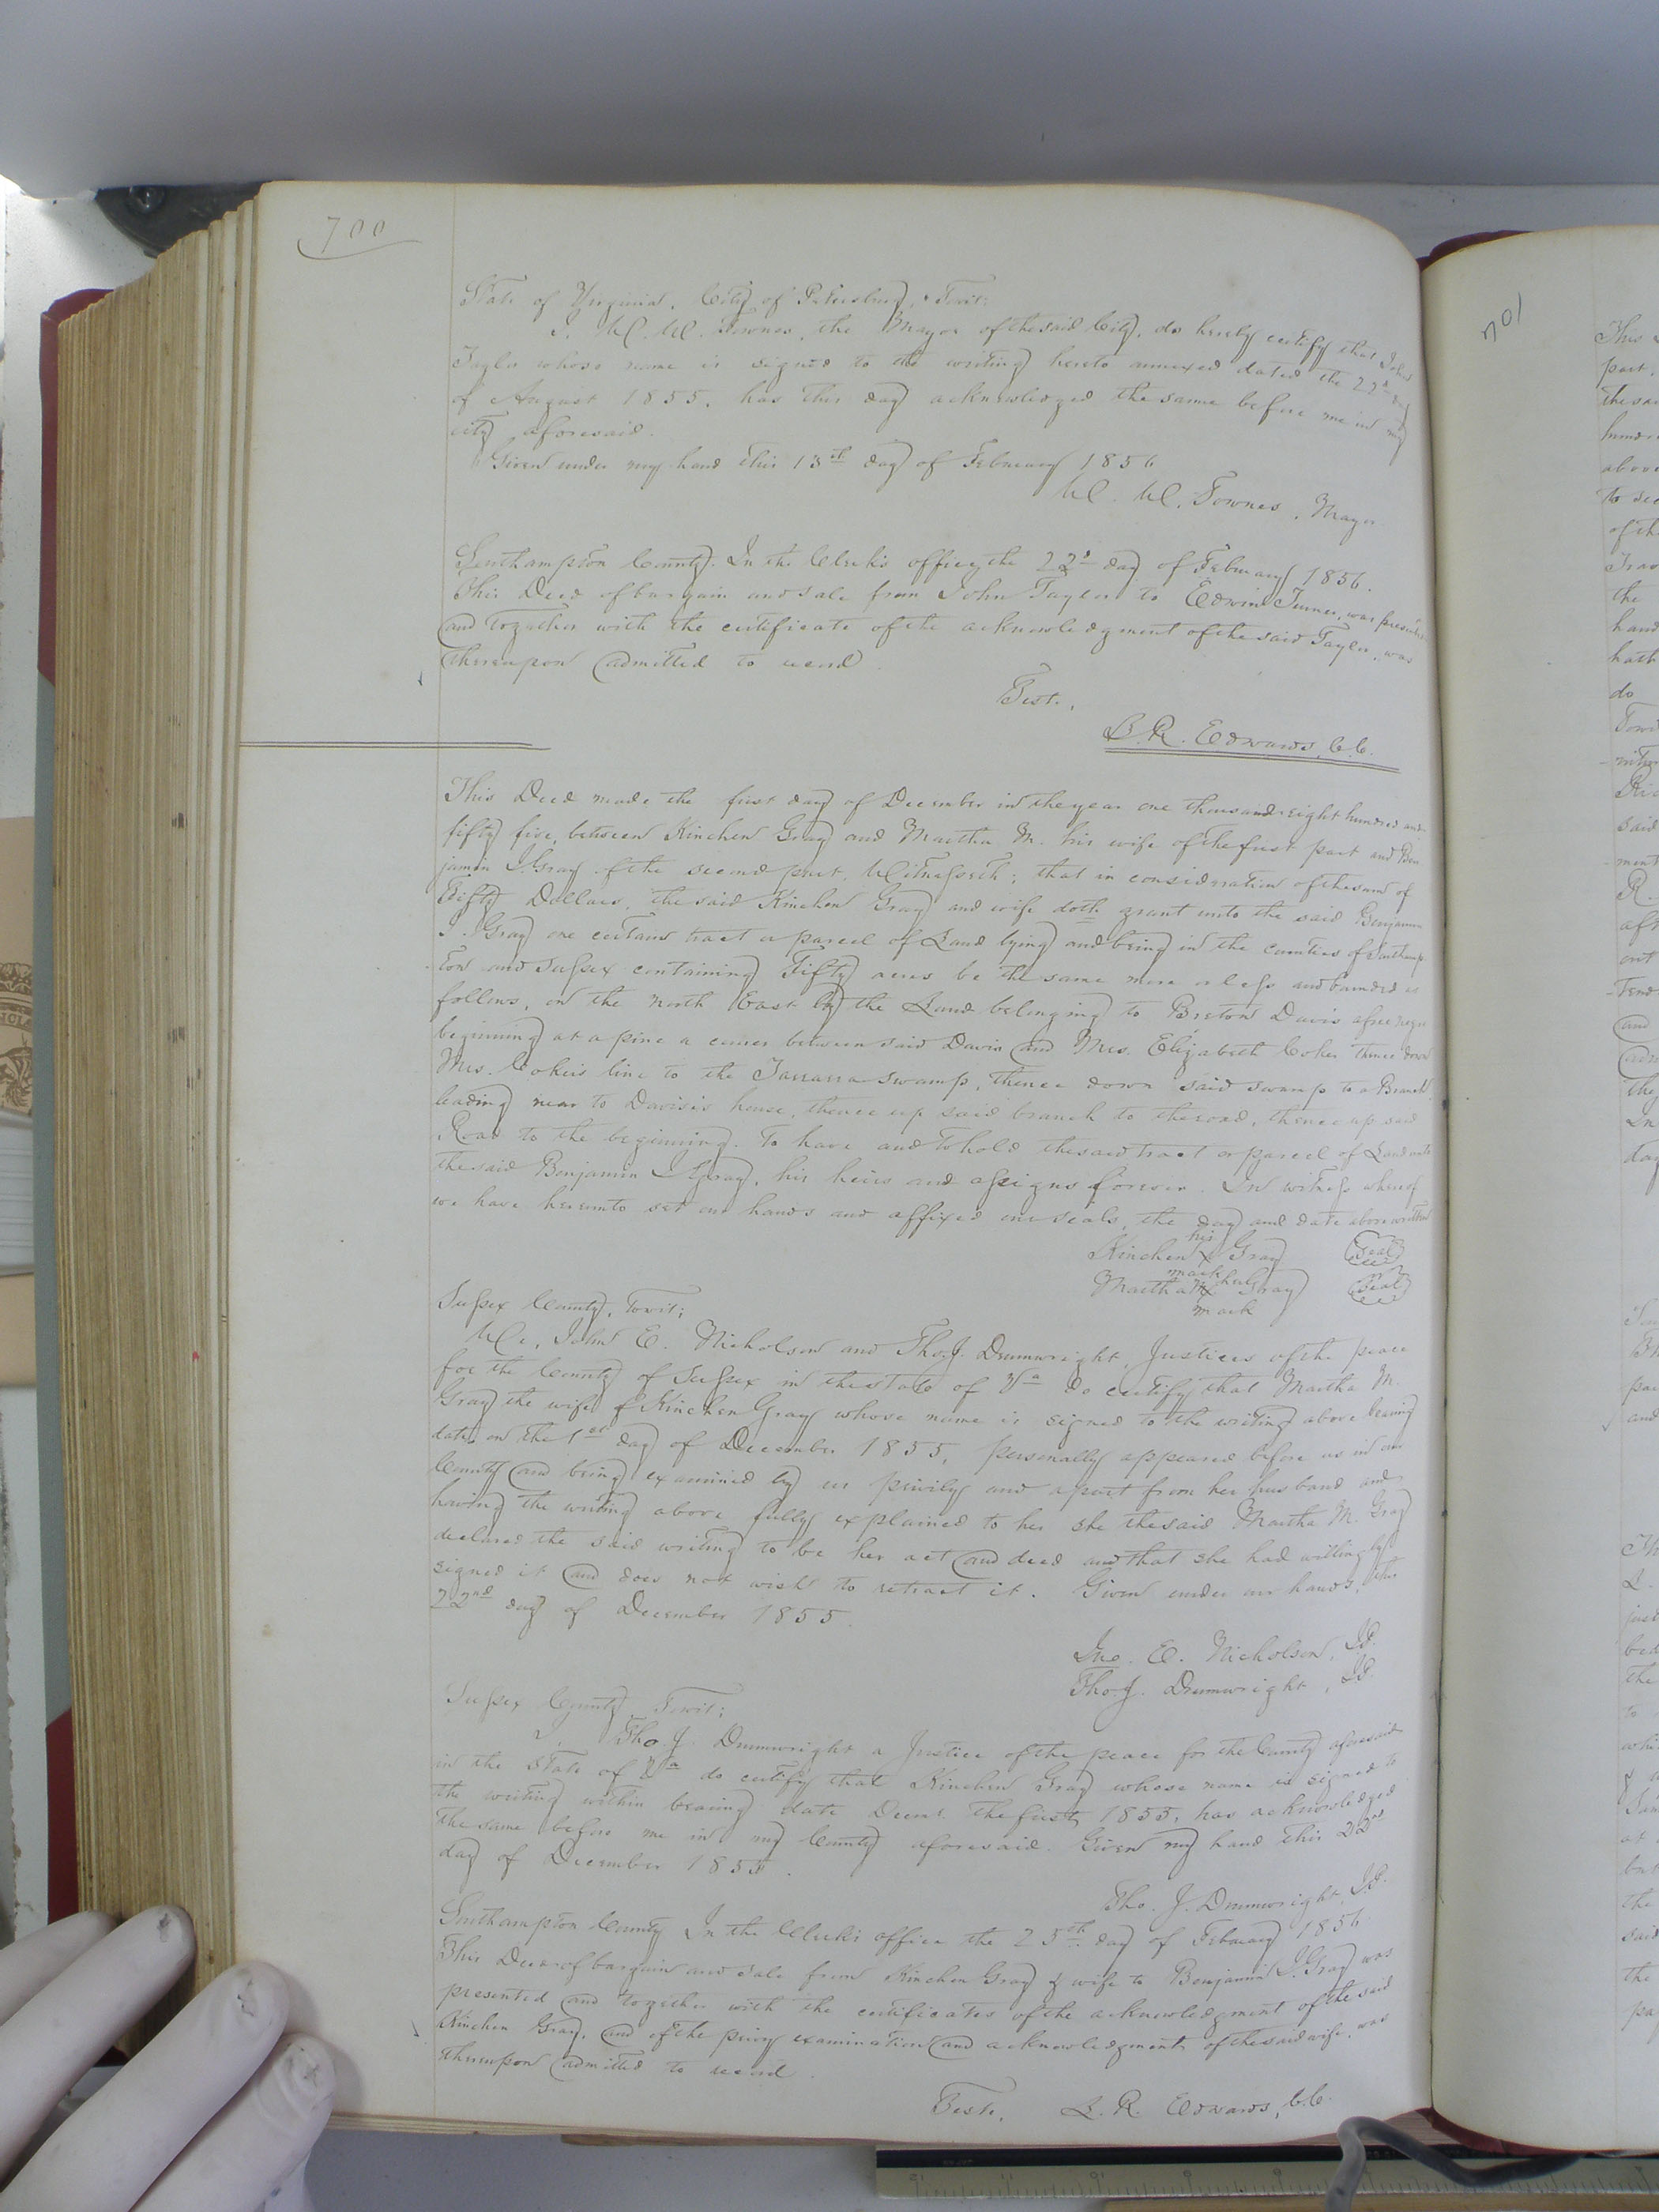 700
State of Virginia, City of Petersburg, Towit:
I. W. W. Townes, the Mayor of the said City, do hereby certify that John
Tayler whose name is signed to the writing hereto annexed dated the 22d day
of August 1855, has this day acknowledged the same before me in my
city aforesaid.
Given under my hand this 13th day of February 1856
W. W. Townes, Mayor
Southampton County. In the Clerk's office, the 22d day of February 1856.
This Deed of bargain and sale from John Tayler to Edwin Turner, was presented
and together with the certificate of the acknowledgment of the said Tayler, was
thereupon admitted to record.
Test.,
L. R. Edwards, C.C.
This Deed made the first day of December in the year one thousand eight hundred and
fifty five, between Kinchen Gray and Martha M. his wife of the first part and Ben
jamin I. Gray of the second part, Witnesseth; that in consideration of the sum of
Fifty Dollars, the said Kinchen Gray and wife doth grant unto the said Benjamin
I. Gray one certain tract or parcel of Land lying and being in the counties of Southamp
-ton and Sussex containing Fifty acres be the same more or less and bounded as
follows, on the north East by the Land belonging to Breton Davis a free negro
beginning at a pine a corner between said Davis and Mrs. Elizabeth Coker thence down
Mrs. Coker's line to the Tarrarra swamp, thence down said swamp to a Branch
leading near to Davis's house, thence up said branch to the road, thence up said
Road to the beginning. To have and to hold the said tract or parcel of Land unto
the said Benjamin I Gray, his heirs and assigns forever. In witness whereof
we have hereunto set our hands and affixed our seals, the day and date above written
his
Kinchen x Gray Seal
mark her
Martha M x Gray Seal
mark
Sussex County, Towit;
We, John E. Nicholson and Tho. J. Drumwright, Justices of the peace
for the County of Sussex in the state of Va do certify that Martha M.
Gray the wife of Kinchen Gray whose name is signed to the writing above bearing
date on the 1st day of December 1855, personally appeared before us in our
County and being examined by us privily and apart from her husband and
having the writing above fully explained to her she the said Martha M. Gray
declared the said writing to be her act and deed and that she had willingly
signed it and does not wish to retract it. Given under our hands, this
22nd day of December 1855.
Jno. E. Nicholson, J.P.
Tho. J. Drumwright, J.P.
Sussex County, Towit;
I, Tho. J. Drumwright a Justice of the peace for the County aforesaid
in the State of Va do certify that Kinchen Gray whose name is signed to
the writing within bearing date Decmr. the first, 1855, has acknowledged
the same before me in my County aforesaid. Given my hand this 22d
day of December 1855.
Tho. J. Drumwright, J.P.
Southampton County In the Clerk's office the 25th day of February 1856.
This Deed of bargain and sale from Kinchen Gray & wife to Benjamin I. Gray was
presented and together with the certificates of the acknowledgment of the said
Kinchen Gray, and of the privy examination and acknowledgment of the said wife, was
thereupon admitted to record.
Teste, L. R. Edwards, C.C.
701